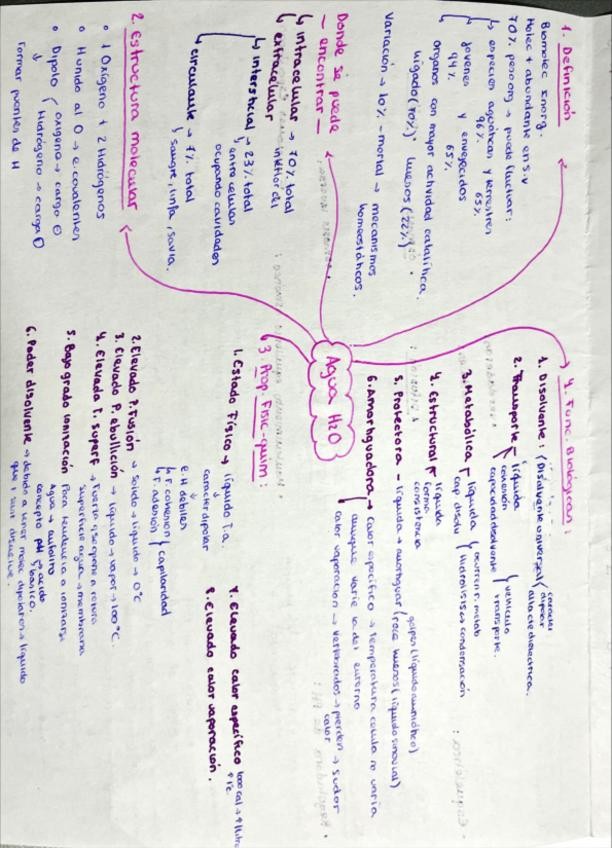 1. Definición
Biomolec Inorg.
Molec + abundante en s.v
70% peso org → puede fluctuar:
especies acuáticas y terrestres
96% 65%
Jóvenes y envejecidos
94% 65%
Organos con mayor actividad catalítica.
Higado (70%) huesos (22%)
Variación → 10% - mortal → mecanismos
homeostáticos.
Donde se puede
— encontrar —
intracelular → 70% total
extracelular
intersticial → 23% total
entre células
ocupando cavidades
circulante → 7% total
sangre, linfa, savia.
2. Estructura molecular
1 Oxígeno + 2 hidrógenos
H unido al O → e-covalentes
Dipolo Oxígeno → carga ⊖
Hidrógeno → carga ⊕
Formar puentes de H
Agua H2O
4. Func. Biológicas:
1. Disolvente: (Disolvente universal) caracter dipolar
alta cte dielectrica.
2. Transporte líquida
cohesión vehículo
capacidad disolvente transporte.
3. Metabólica líquida ocurren r. metab
cap. disolv Hidrólisis o condensación
4. Estructural líquida
forma
consistencia
5. Protectora - líquida → amortiguar golpes (líquido amniótico)
roce huesos (líquido sinovial)
6. Amortiguadora → calor específico → temperatura celula no varia
aunque varie la del externo
calor vaporación → vertebrados → pierden → sudor
calor
3. Prop. Físic-quím:
1. Estado Físico → líquido T.a.
caracter dipolar
e. H débiles
F. cohesión capilaridad
F. adhesión
2. Elevado P. Fusión → solido → líquido → 0°C
3. Elevado P. ebullición → líquido → vapor → 100°C.
4. Elevada T. superf → Fuerza q se opone a rotura
superficie agua → membrana
5. Bajo grado ionización Poca tendencia a ionizarse
Agua → anfolito
concepto pH → ácido
básico.
6. Poder disolvente → debido a tener molec dipolares → líquido
que + sust disuelve.
7. Elevado calor específico 1000 cal → 1 litro
↑ 1°C.
8. Elevado calor vaporación.